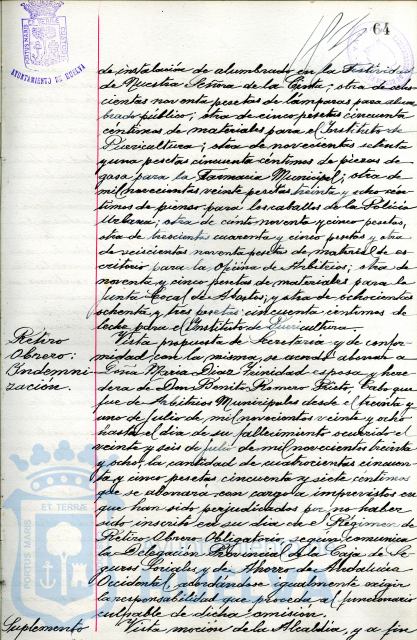 64
AYUNTAMIENTO DE HUELVA
de instalación de alumbrado en la Festividad
de Nuestra Señora de la Cinta; otra de
cientas noventa pesetas de lámparas para alum
brado público; otra de cinco pesetas cincuenta
céntimos de materiales para el Instituto de
Puericultura; otra de novecientas ochenta
y una pesetas cincuenta céntimos de piezas de
gasa para la Farmacia Municipal; otra de
mil novecientas veinte pesetas treinta y ocho cén-
timos de pienso para los caballos de la Policía
Urbana; otra de ciento noventa y cinco pesetas,
otra de trescientas cuarenta y cinco pesetas y otra
de seiscientas noventa pesetas de material de es
critorio para la Oficina de Arbitrios; otra de
noventa y cinco pesetas de materiales para la
Junta Local de Abastos; y otra de ochocientas
ochenta y tres pesetas cincuenta céntimos de
leche para el Instituto de Puericultura.
Retiro
Obrero:
Indemni
zación.
Vista propuesta de Secretaría y de confor-
midad con la misma, se acordó abonar a
Doña María Díaz Trinidad esposa y here
dera de Don Benito Romero Prieto, Cabo que
fue de Arbitrios Municipales desde el treinta y
uno de Julio de mil novecientos veinte y ocho
hasta el día de su fallecimiento ocurrido el
veinte y seis de Julio de mil novecientos treinta
y ocho, la cantidad de cuatrocientas cincuen
ta y unas pesetas cincuenta y siete céntimos
que se abonará con cargo a imprevistos en
que han sido perjudicados por no haber
sido inscrito en su día en el Régimen de
Retiro Obrero Obligatorio, según comunica
la Delegación de la Caja de Se
guros Sociales y de Ahorros de Andalucía
Occidental; acordándose igualmente exigir
la responsabilidad que proceda al funcionario
culpable de dicha omisión.
Suplemento
Vista moción de la Alcaldía, y a fin
PORTUS MARIS ET TERRAE CUSTODIA